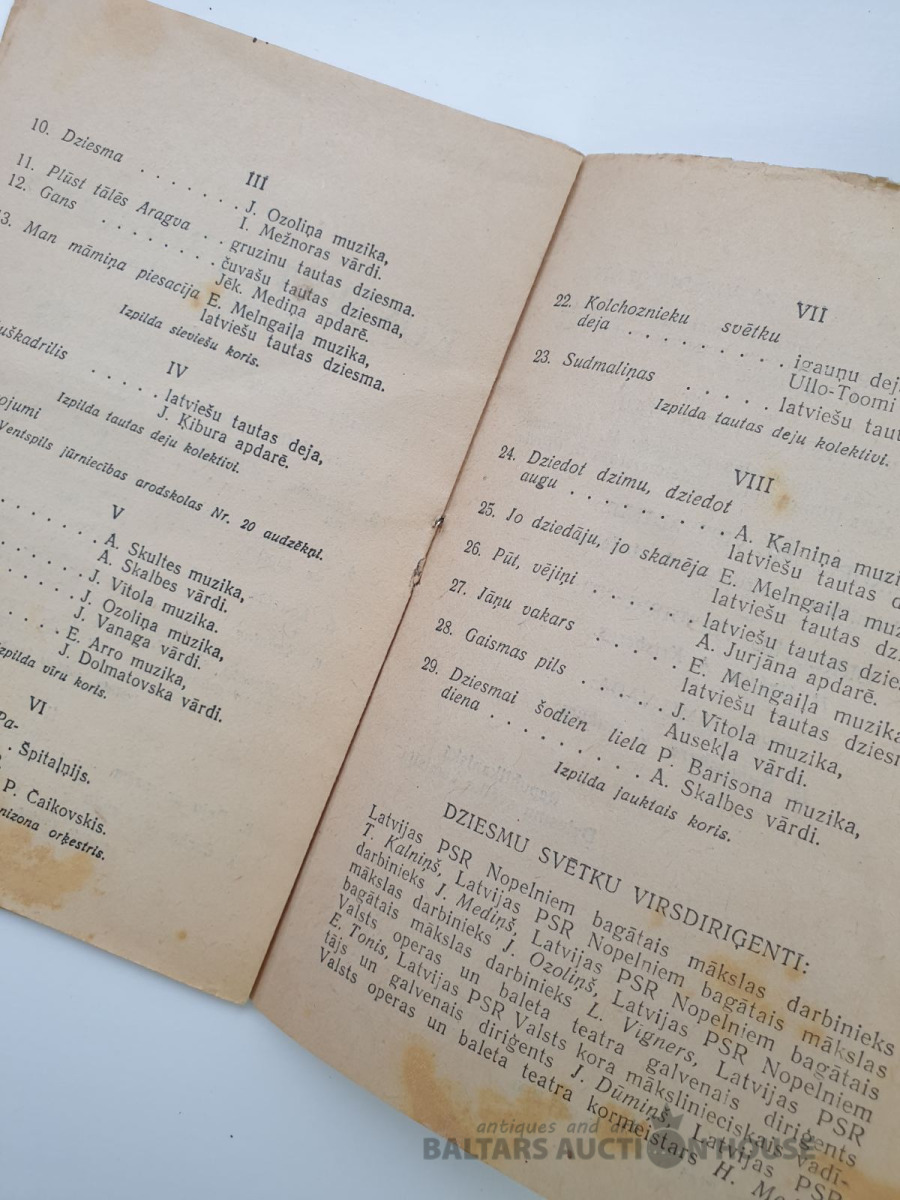 III
10. Dziesma . . . . . . . J. Ozoliņa muzika,
I. Mežnoras vārdi.
11. Plūst tālēs Aragva . . gruzinu tautas dziesma.
12. Gans . . . . . . . . čuvašu tautas dziesma,
Jēk. Mediņa apdarē.
13. Man māmiņa piesacīja E. Melngaiļa muzika,
latviešu tautas dziesma.
Izpilda sieviešu koris.
IV
. . . . . latviešu tautas deja,
J. Ķibura apdarē.
Izpilda tautas deju kolektivi.
Ventspils jūrniecības arodskolas Nr. 20 audzēkņi.
V
A. Skultes muzika,
A. Skalbes vārdi.
J. Vītola muzika.
J. Ozoliņa muzika,
J. Vanaga vārdi.
E. Arro muzika,
J. Dolmatovska vārdi.
Izpilda vīru koris.
VI
Špitaļņijs.
P. Čaikovskis.
orķestris.
VII
22. Kolchoznieku svētku
deja . . . . . . . . igauņu
Ullo-Toomi
23. Sudmaliņas . . . . . latviešu
Izpilda tautas deju kolektivi.
VIII
24. Dziedot dzimu, dziedot
augu . . . . . . . . A. Kalniņa
latviešu tautas
25. Jo dziedāju, jo skanēja E. Melngaiļa
latviešu tautas
26. Pūt, vējiņi . . . . . . latviešu tautas
A. Jurjāna apdarē.
27. Jāņu vakars . . . . . E. Melngaiļa muzika,
latviešu tautas
28. Gaismas pils . . . . . J. Vītola muzika,
Ausekļa vārdi.
29. Dziesmai šodien liela P. Barisona muzika,
diena . . . . . . . A. Skalbes vārdi.
Izpilda jauktais koris.
DZIESMU SVĒTKU VIRSDIRIĢENTI:
Latvijas PSR Nopelniem bagātais mākslas darbinieks
T. Kalniņš, Latvijas PSR Nopelniem bagātais mākslas
darbinieks J. Mediņš, Latvijas PSR Nopelniem bagātais
mākslas darbinieks J. Ozoliņš, Latvijas PSR Nopelniem
bagātais mākslas darbinieks L. Vigners, Latvijas PSR
Valsts operas un baleta teatra galvenais diriģents
E. Tonis, Latvijas PSR Valsts kora mākslinieciskais vadī-
tājs un galvenais diriģents J. Dūmiņš, Latvijas PSR
Valsts operas un baleta teatra kormeistars H.
antiques and
BALTARS AUCTION HOUSE